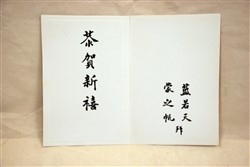 恭贺新禧
蓝若天
蒙之帆
拜